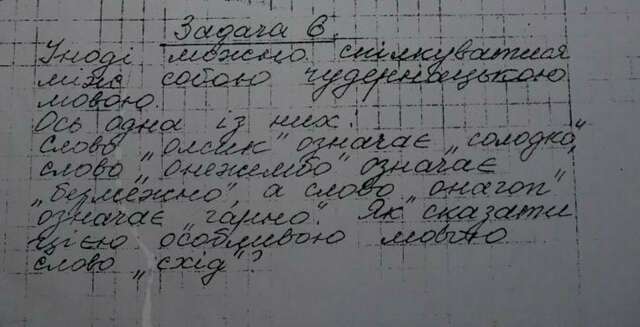 Задача 6.
Іноді можно спілкуватися
між собою чудернацькою
мовою.
Ось одна із них.
Слово „олсик" означає „солодко",
слово „онежембо" означає
„бермежно", а слово „онагоп"
означає „гарно". Як сказати
цією особливою мовою
слово „схід"?